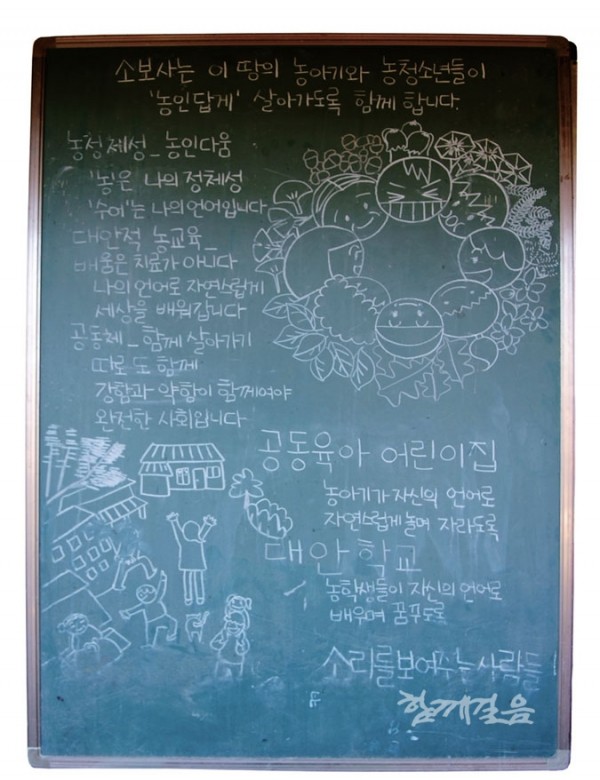 소보사는 이 땅의 농아기와 농청소년들이
'농인답게' 살아가도록 함께 합니다.
농정체성_농인다움
'농'은 나의 정체성
'수어'는 나의 언어입니다
대안적 농교육_
배움은 치료가 아니다
나의 언어로 자연스럽게
세상을 배워갑니다
공동체_함께 살아가기
따로 또 함께
강함과 약함이 함께여야
완전한 사회입니다
공동육아 어린이집
농아기가 자신의 언어로
자연스럽게 놀며 자라도록
대안학교
농학생들이 자신의 언어로
배우며 꿈꾸도록
소리를보여주는사람들
함께걸음